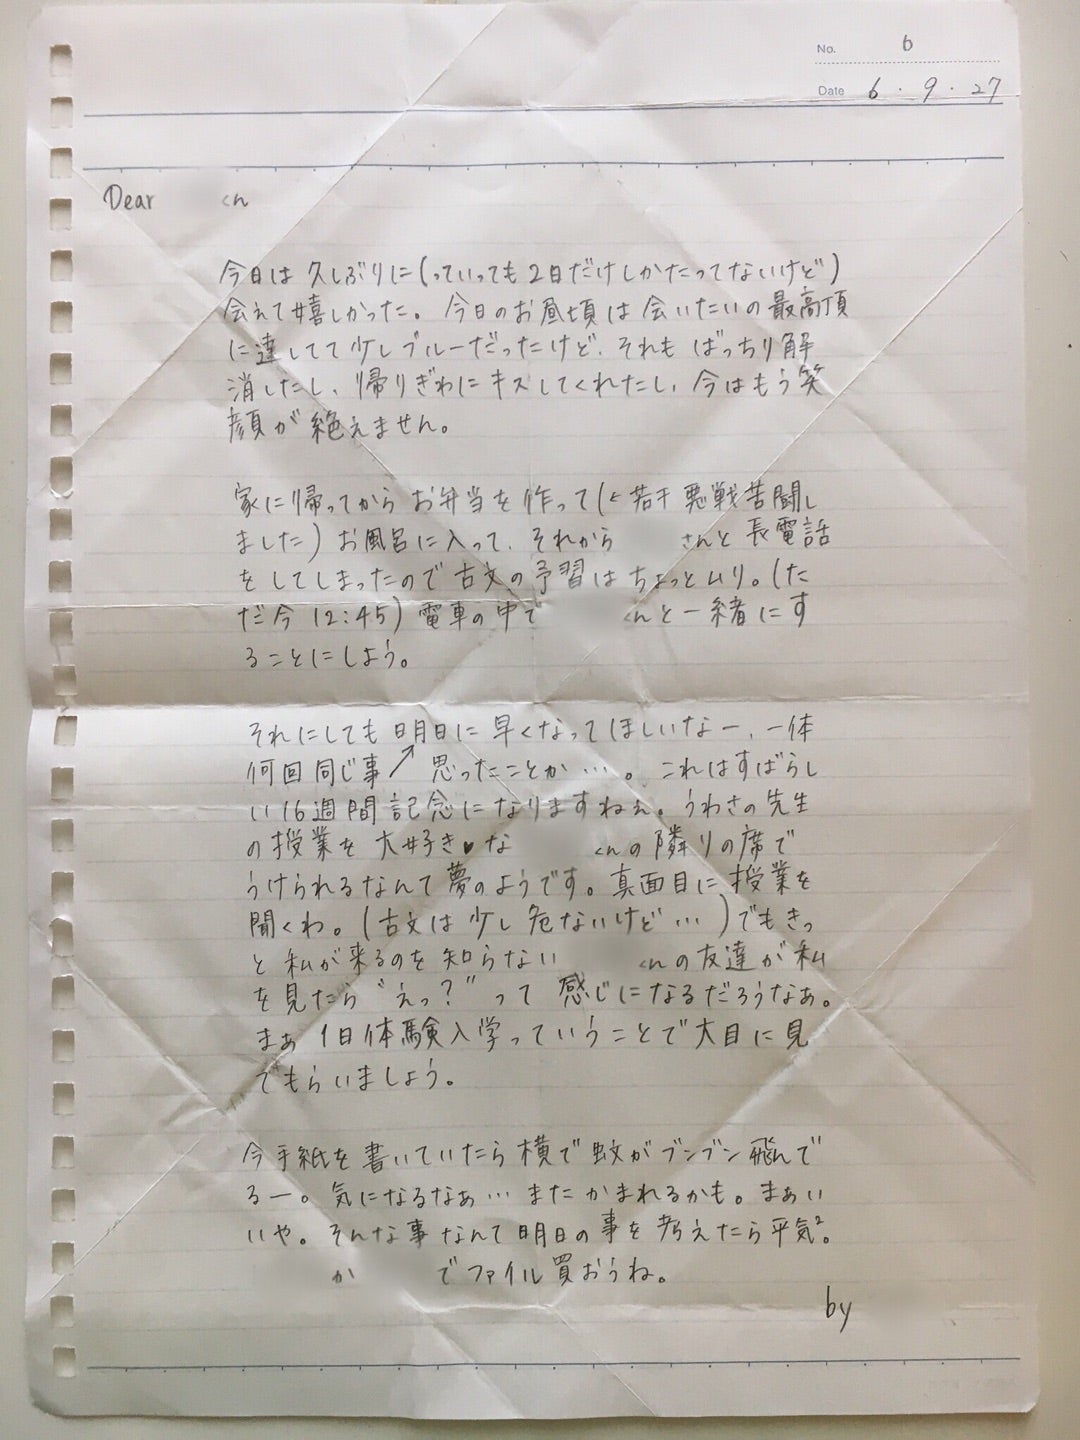 No. 6
Date 6・9・27
Dear くん
今日は久しぶりに(っていっても2日だけしかたってないけど)
会えて嬉しかった。今日のお昼頃は会いたいの最高頂
に達してて少しブルーだったけど、それもばっちり解
消したし、帰りぎわにキスしてくれたし、今はもう笑
顔が絶えません。
家に帰ってからお弁当を作って(←若干悪戦苦闘し
ました)お風呂に入って、それから さんと長電話
をしてしまったので古文の予習はちょっとムリ。(た
だ今12:45)電車の中で くんと一緒にす
ることにしよう。
それにしても明日に早くなってほしいなー、一体
何回同じ事↗思ったことか…。これはすばらし
い16週間記念になりますねぇ。うわさの先生
の授業を大好き♥な くんの隣りの席で
うけられるなんて夢のようです。真面目に授業を
聞くわ。(古文は少し危ないけど…)でもきっ
と私が来るのを知らない くんの友達が私
を見たら“えっ?”って感じになるだろうなぁ。
まぁ1日体験入学っていうことで大目に見
てもらいましょう。
今手紙を書いていたら横で蚊がブンブン飛んで
るー。気になるなぁ…またかまれるかも。まぁい
いや。そんな事なんて明日の事を考えたら平気²。
か でファイル買おうね。
by